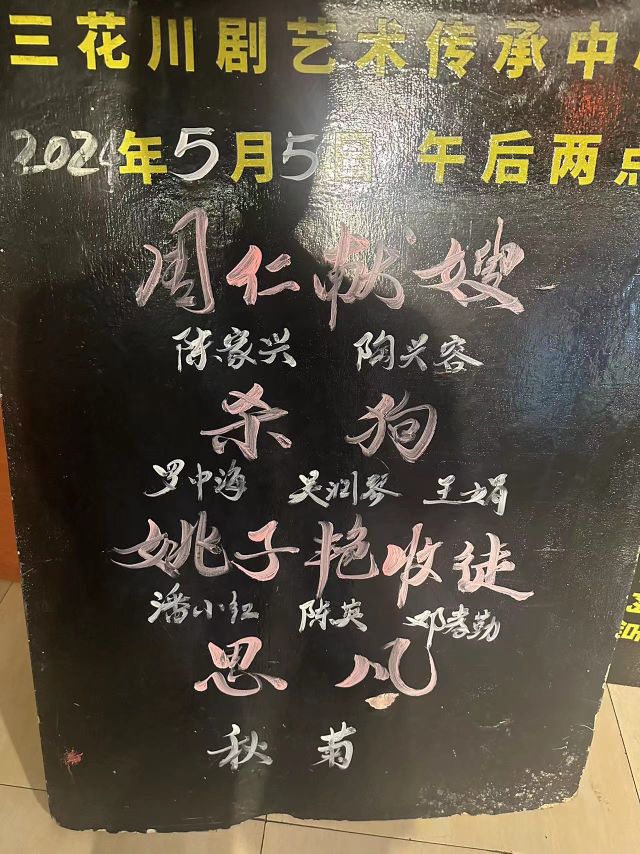 三花川剧艺术传承中
2024年5月5日 午后两点
周仁献嫂
陈家兴 陶兴容
杀 狗
罗中海 吴润琴 王文娟
姚子艳收徒
潘小红 陈英 邓孝勤
思凡
秋菊